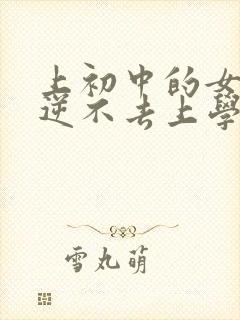 上初中的女
逆不去上學
雪丸萌